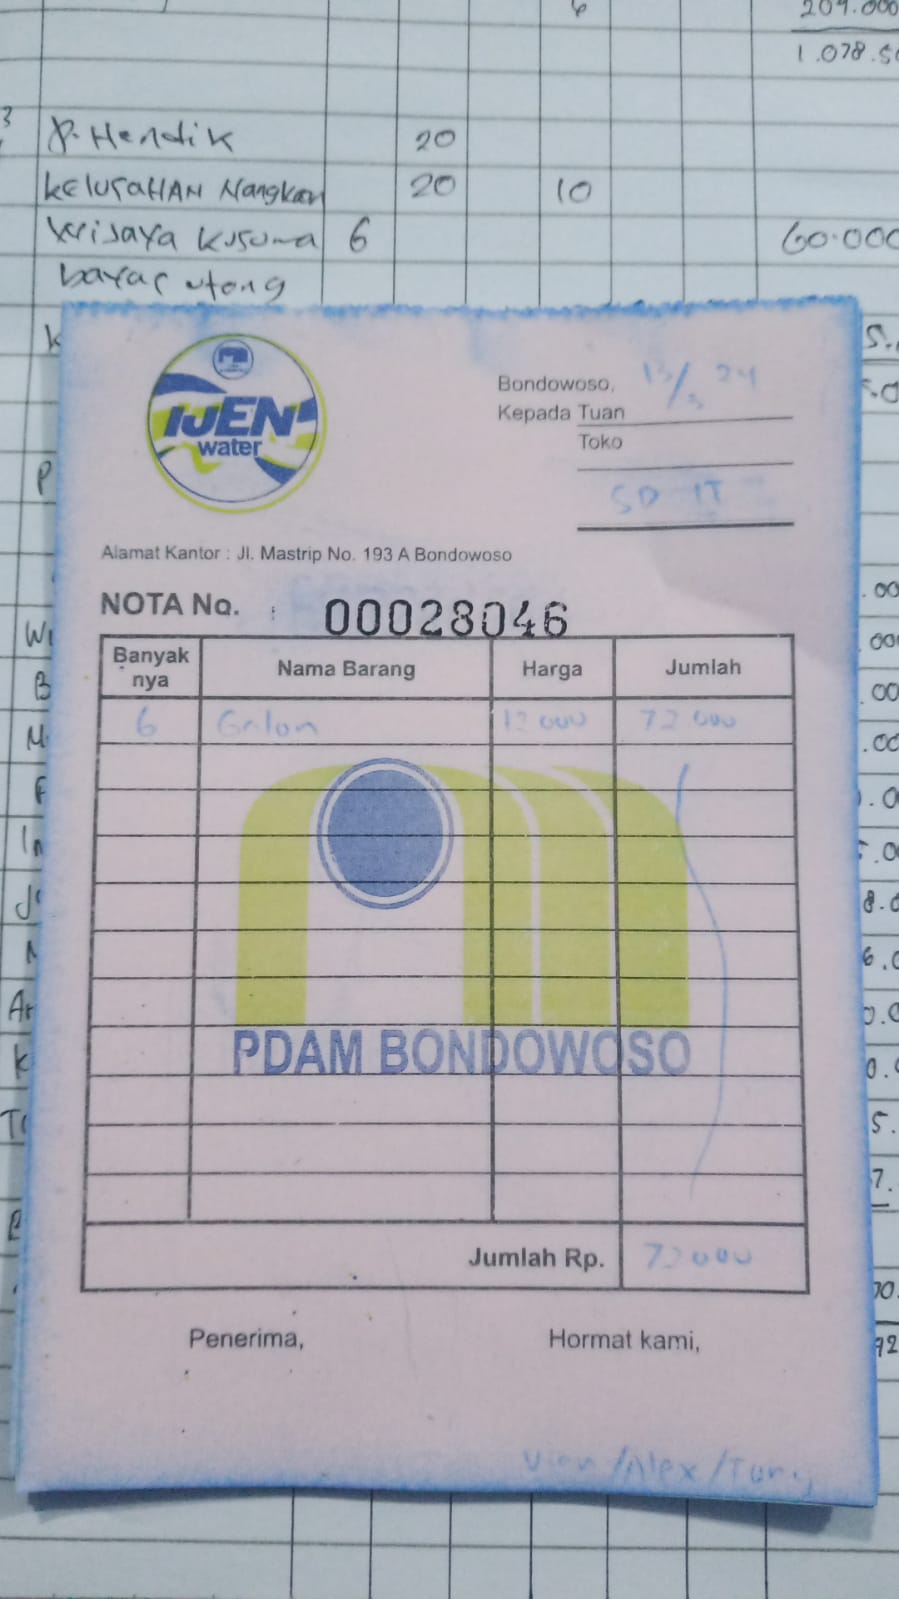 6
209.000
1.078.50
3
P. Hendik 20
KELURAHAN Nangkaan 20 10
Wijaya Kusuma 6 60.000
bayar utong
K
IJEN
water
Bondowoso, 13/3 24
Kepada Tuan
Toko
SD IT
P
Alamat Kantor : Jl. Mastrip No. 193 A Bondowoso
NOTA No. : 00028046
Banyak nya Nama Barang Harga Jumlah
6 Galon 12 000 72 000
PDAM BONDOWOSO
Jumlah Rp. 72 000
Penerima, Hormat kami,
/Alex/Tony